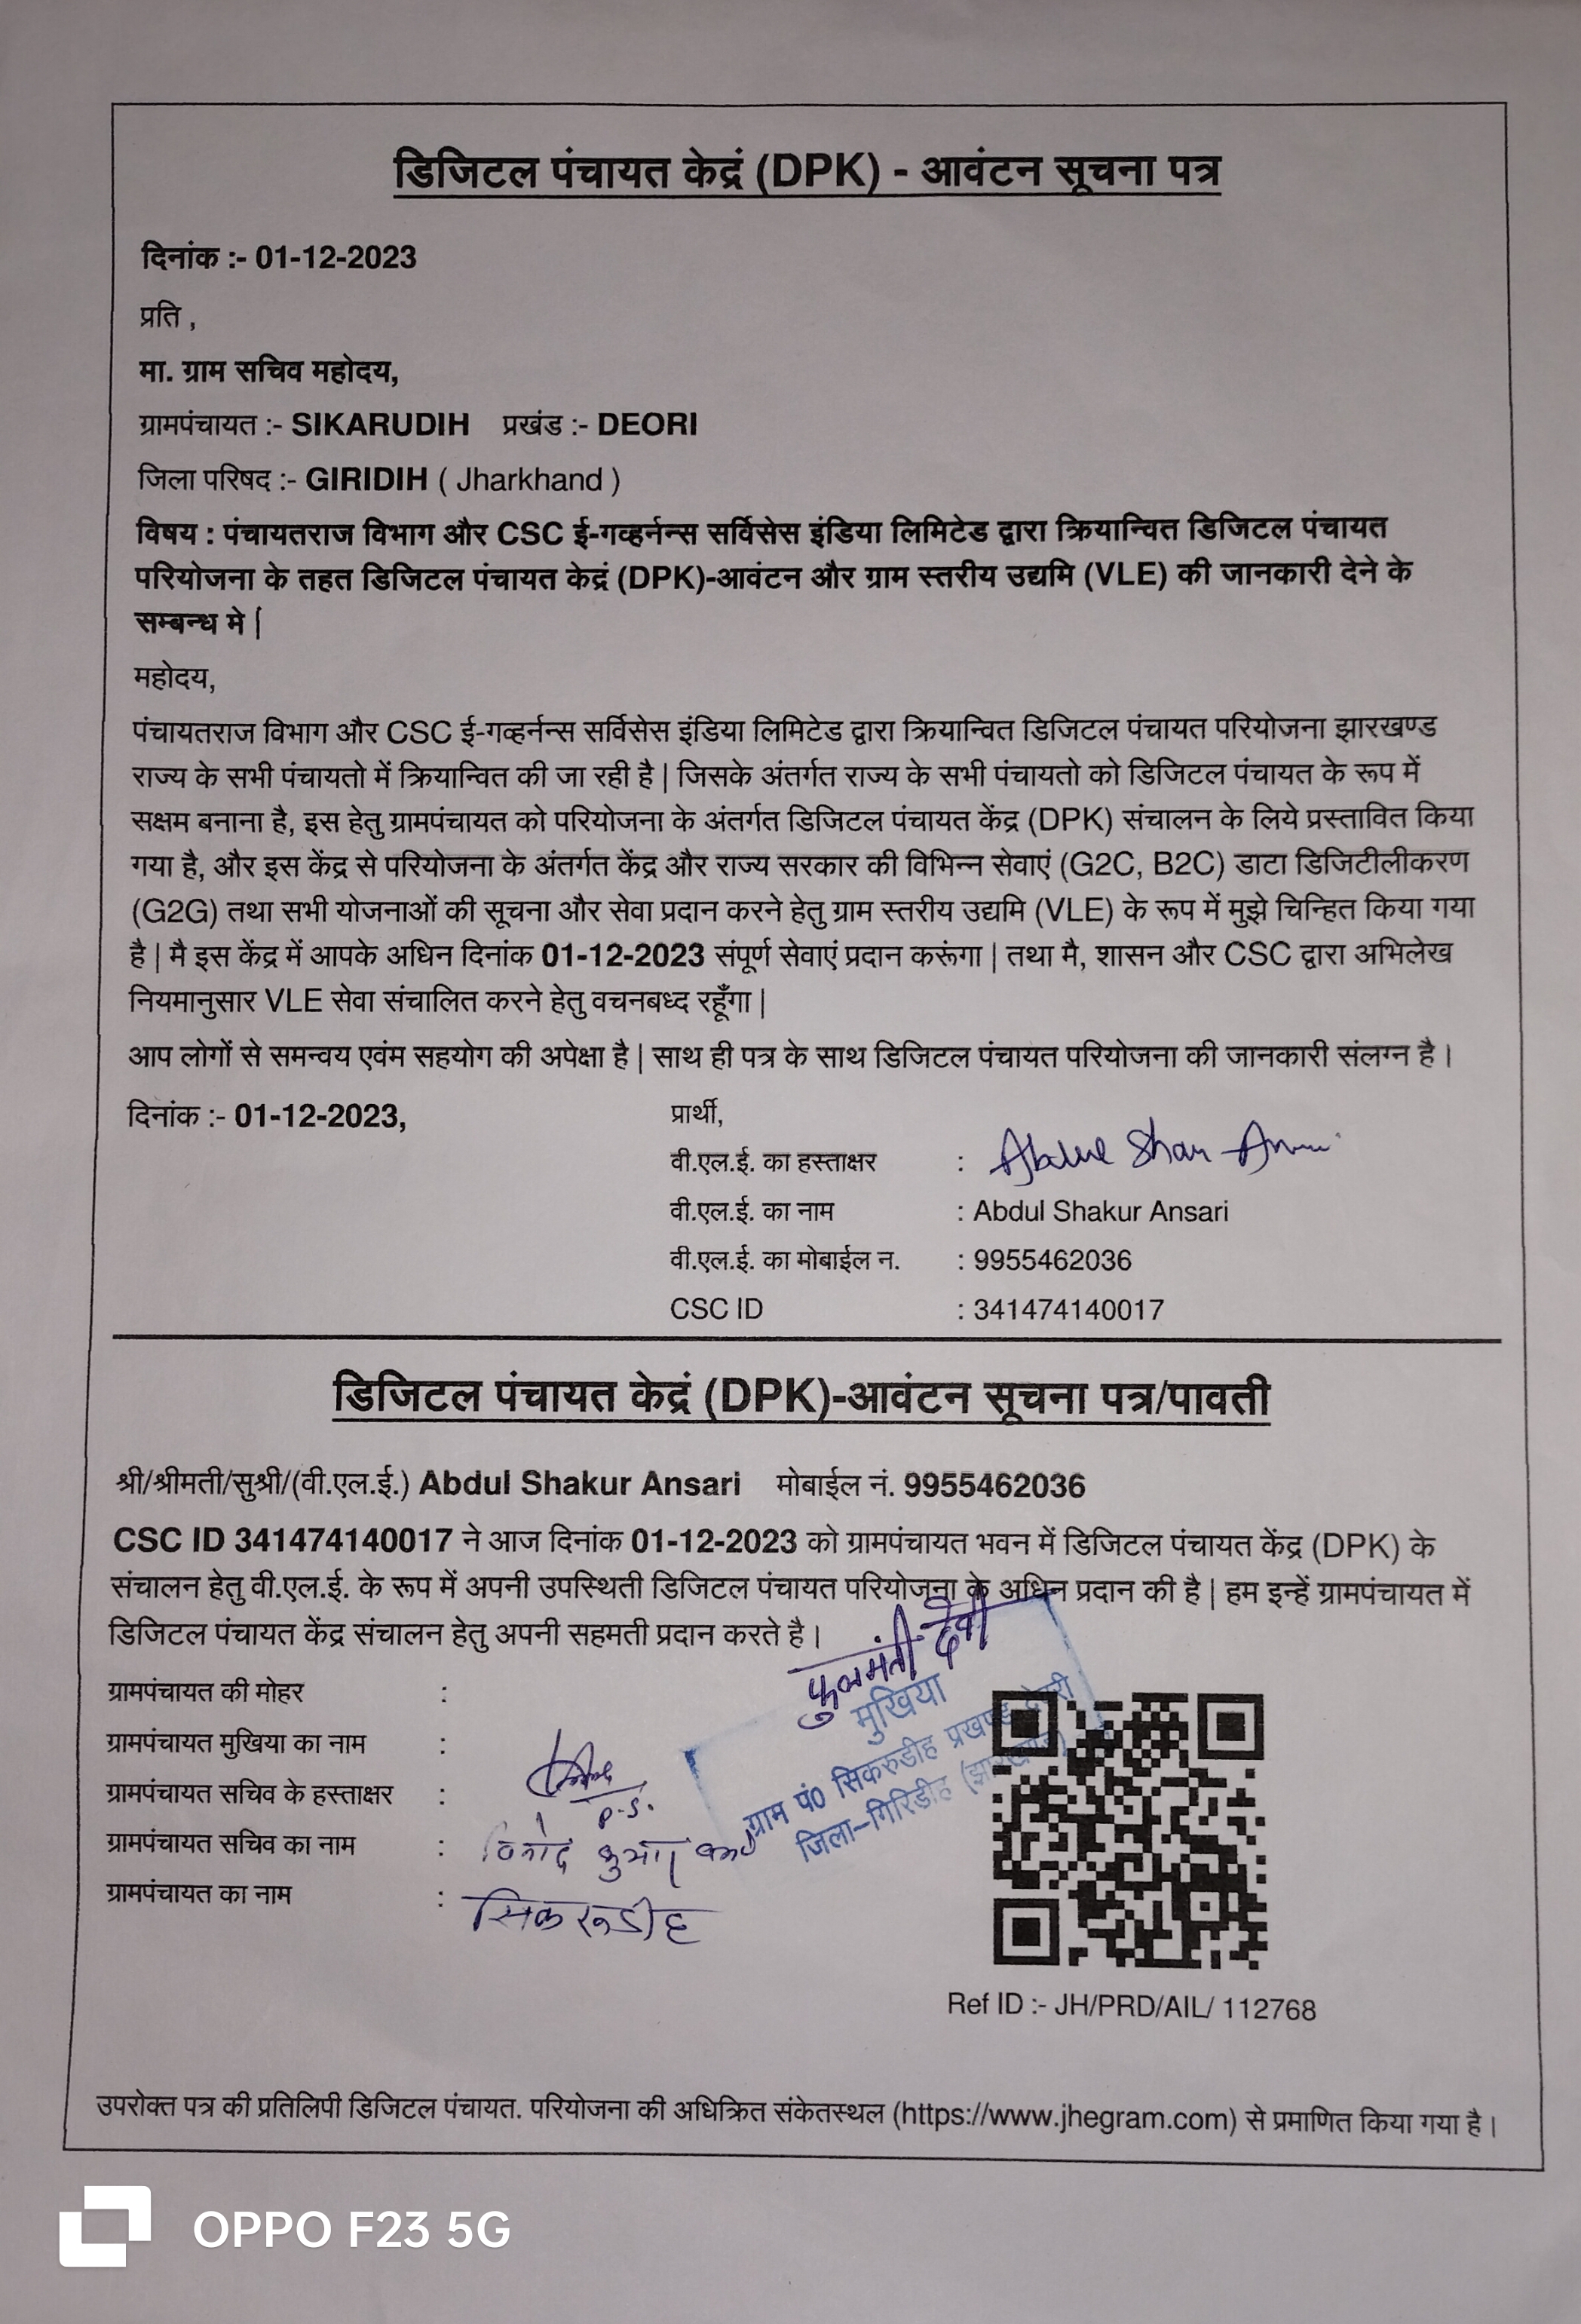 डिजिटल पंचायत केद्रं (DPK) - आवंटन सूचना पत्र
दिनांक :- 01-12-2023
प्रति ,
मा. ग्राम सचिव महोदय,
ग्रामपंचायत :- SIKARUDIH प्रखंड :- DEORI
जिला परिषद :- GIRIDIH ( Jharkhand )
विषय : पंचायतराज विभाग और CSC ई-गव्हर्नन्स सर्विसेस इंडिया लिमिटेड द्वारा क्रियान्वित डिजिटल पंचायत
परियोजना के तहत डिजिटल पंचायत केद्रं (DPK)-आवंटन और ग्राम स्तरीय उद्यमि (VLE) की जानकारी देने के
सम्बन्ध मे |
महोदय,
पंचायतराज विभाग और CSC ई-गव्हर्नन्स सर्विसेस इंडिया लिमिटेड द्वारा क्रियान्वित डिजिटल पंचायत परियोजना झारखण्ड
राज्य के सभी पंचायतो में क्रियान्वित की जा रही है | जिसके अंतर्गत राज्य के सभी पंचायतो को डिजिटल पंचायत के रूप में
सक्षम बनाना है, इस हेतु ग्रामपंचायत को परियोजना के अंतर्गत डिजिटल पंचायत केंद्र (DPK) संचालन के लिये प्रस्तावित किया
गया है, और इस केंद्र से परियोजना के अंतर्गत केंद्र और राज्य सरकार की विभिन्न सेवाएं (G2C, B2C) डाटा डिजिटीलीकरण
(G2G) तथा सभी योजनाओं की सूचना और सेवा प्रदान करने हेतु ग्राम स्तरीय उद्यमि (VLE) के रूप में मुझे चिन्हित किया गया
है | मै इस केंद्र में आपके अधिन दिनांक 01-12-2023 संपूर्ण सेवाएं प्रदान करूंगा | तथा मै, शासन और CSC द्वारा अभिलेख
नियमानुसार VLE सेवा संचालित करने हेतु वचनबध्द रहूँगा |
आप लोगों से समन्वय एवंम सहयोग की अपेक्षा है | साथ ही पत्र के साथ डिजिटल पंचायत परियोजना की जानकारी संलग्न है |
दिनांक :- 01-12-2023,
प्रार्थी,
वी.एल.ई. का हस्ताक्षर :
वी.एल.ई. का नाम : Abdul Shakur Ansari
वी.एल.ई. का मोबाईल न. : 9955462036
CSC ID : 341474140017
डिजिटल पंचायत केद्रं (DPK)-आवंटन सूचना पत्र/पावती
श्री/श्रीमती/सुश्री/(वी.एल.ई.) Abdul Shakur Ansari मोबाईल नं. 9955462036
CSC ID 341474140017 ने आज दिनांक 01-12-2023 को ग्रामपंचायत भवन में डिजिटल पंचायत केंद्र (DPK) के
संचालन हेतु वी.एल.ई. के रूप में अपनी उपस्थिती डिजिटल पंचायत परियोजना के अधिन प्रदान की है | हम इन्हें ग्रामपंचायत में
डिजिटल पंचायत केंद्र संचालन हेतु अपनी सहमती प्रदान करते है |
फुलमंती देवी
मुखिया
ग्राम पं0 सिकरुडीह प्रखण्ड देवरी
जिला-गिरिडीह (झारखण्ड)
ग्रामपंचायत की मोहर :
ग्रामपंचायत मुखिया का नाम :
ग्रामपंचायत सचिव के हस्ताक्षर : P.S.
ग्रामपंचायत सचिव का नाम : विनोद कुमार
ग्रामपंचायत का नाम : सिकरूडीह
Ref ID :- JH/PRD/AIL/ 112768
उपरोक्त पत्र की प्रतिलिपी डिजिटल पंचायत. परियोजना की अधिक्रित संकेतस्थल (https://www.jhegram.com) से प्रमाणित किया गया है |
OPPO F23 5G